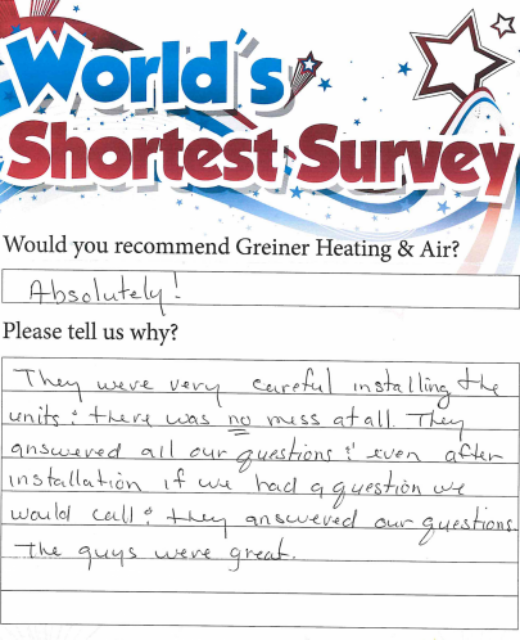 World's
Shortest Survey
Would you recommend Greiner Heating & Air?
Absolutely!
Please tell us why?
They were very careful installing the
units & there was no mess at all. They
answered all our questions & even after
installation if we had a question we
would call & they answered our questions.
The guys were great.